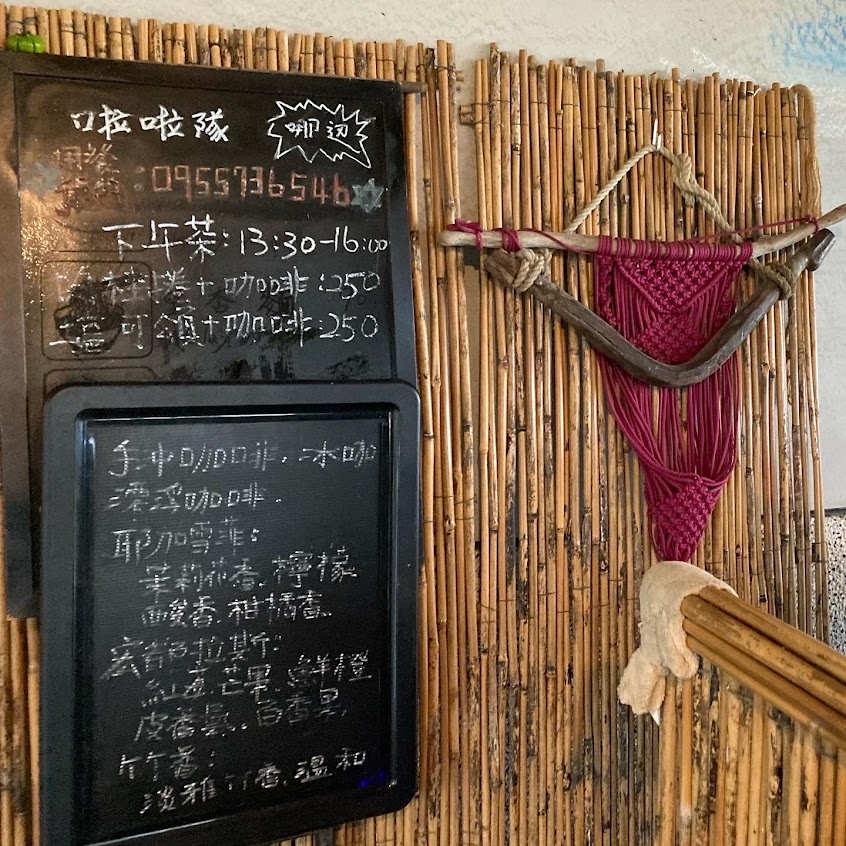 啦啦隊 哪边
用餐
:0955736546
下午茶:13:30-16:00
+咖啡:250
可頌+咖啡:250
手冲咖啡.冰咖
漂浮咖啡.
耶加雪菲:
茉莉花香.檸檬
酸香.柑橘香.
宏都拉斯:
紅棗.芒果.鮮橙
皮香氣.百香果,
竹香:
淡雅竹香.溫和